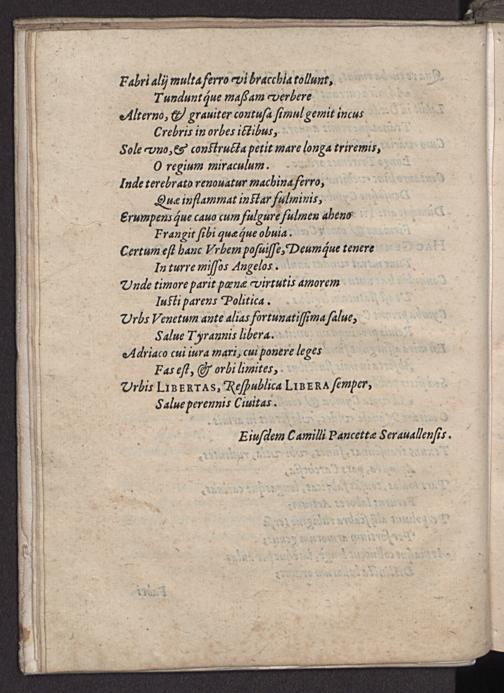 Fabri alij multa ferro vi bracchia tollunt,
Tundunt q́ue maßam verbere
Alterno, & grauiter contusa simul gemit incus
Crebris in orbes ictibus,
Sole vno, & constructa petit mare longa triremis,
O regium miraculum.
Inde terebrato renouatur machina ferro,
Quæ inflammat instar fulminis,
Erumpens q́ue cauo cum fulgure fulmen aheno
Frangit sibi quæque obuia.
Certum est hanc Vrbem posuisse, Deumq́ue tenere
In turre missos Angelos.
Vnde timore parit pœnæ virtutis amorem
Iusti parens Politica.
Vrbs Venetum ante alias fortunatissima salue,
Salue Tyrannis libera.
Adriaco cui iura mari, cui ponere leges
Fas est, & orbi limites,
Vrbis LIBERTAS, Respublica LIBERA semper,
Salue perennis Ciuitas.
Eiusdem Camilli Pancettæ Serauallensis.